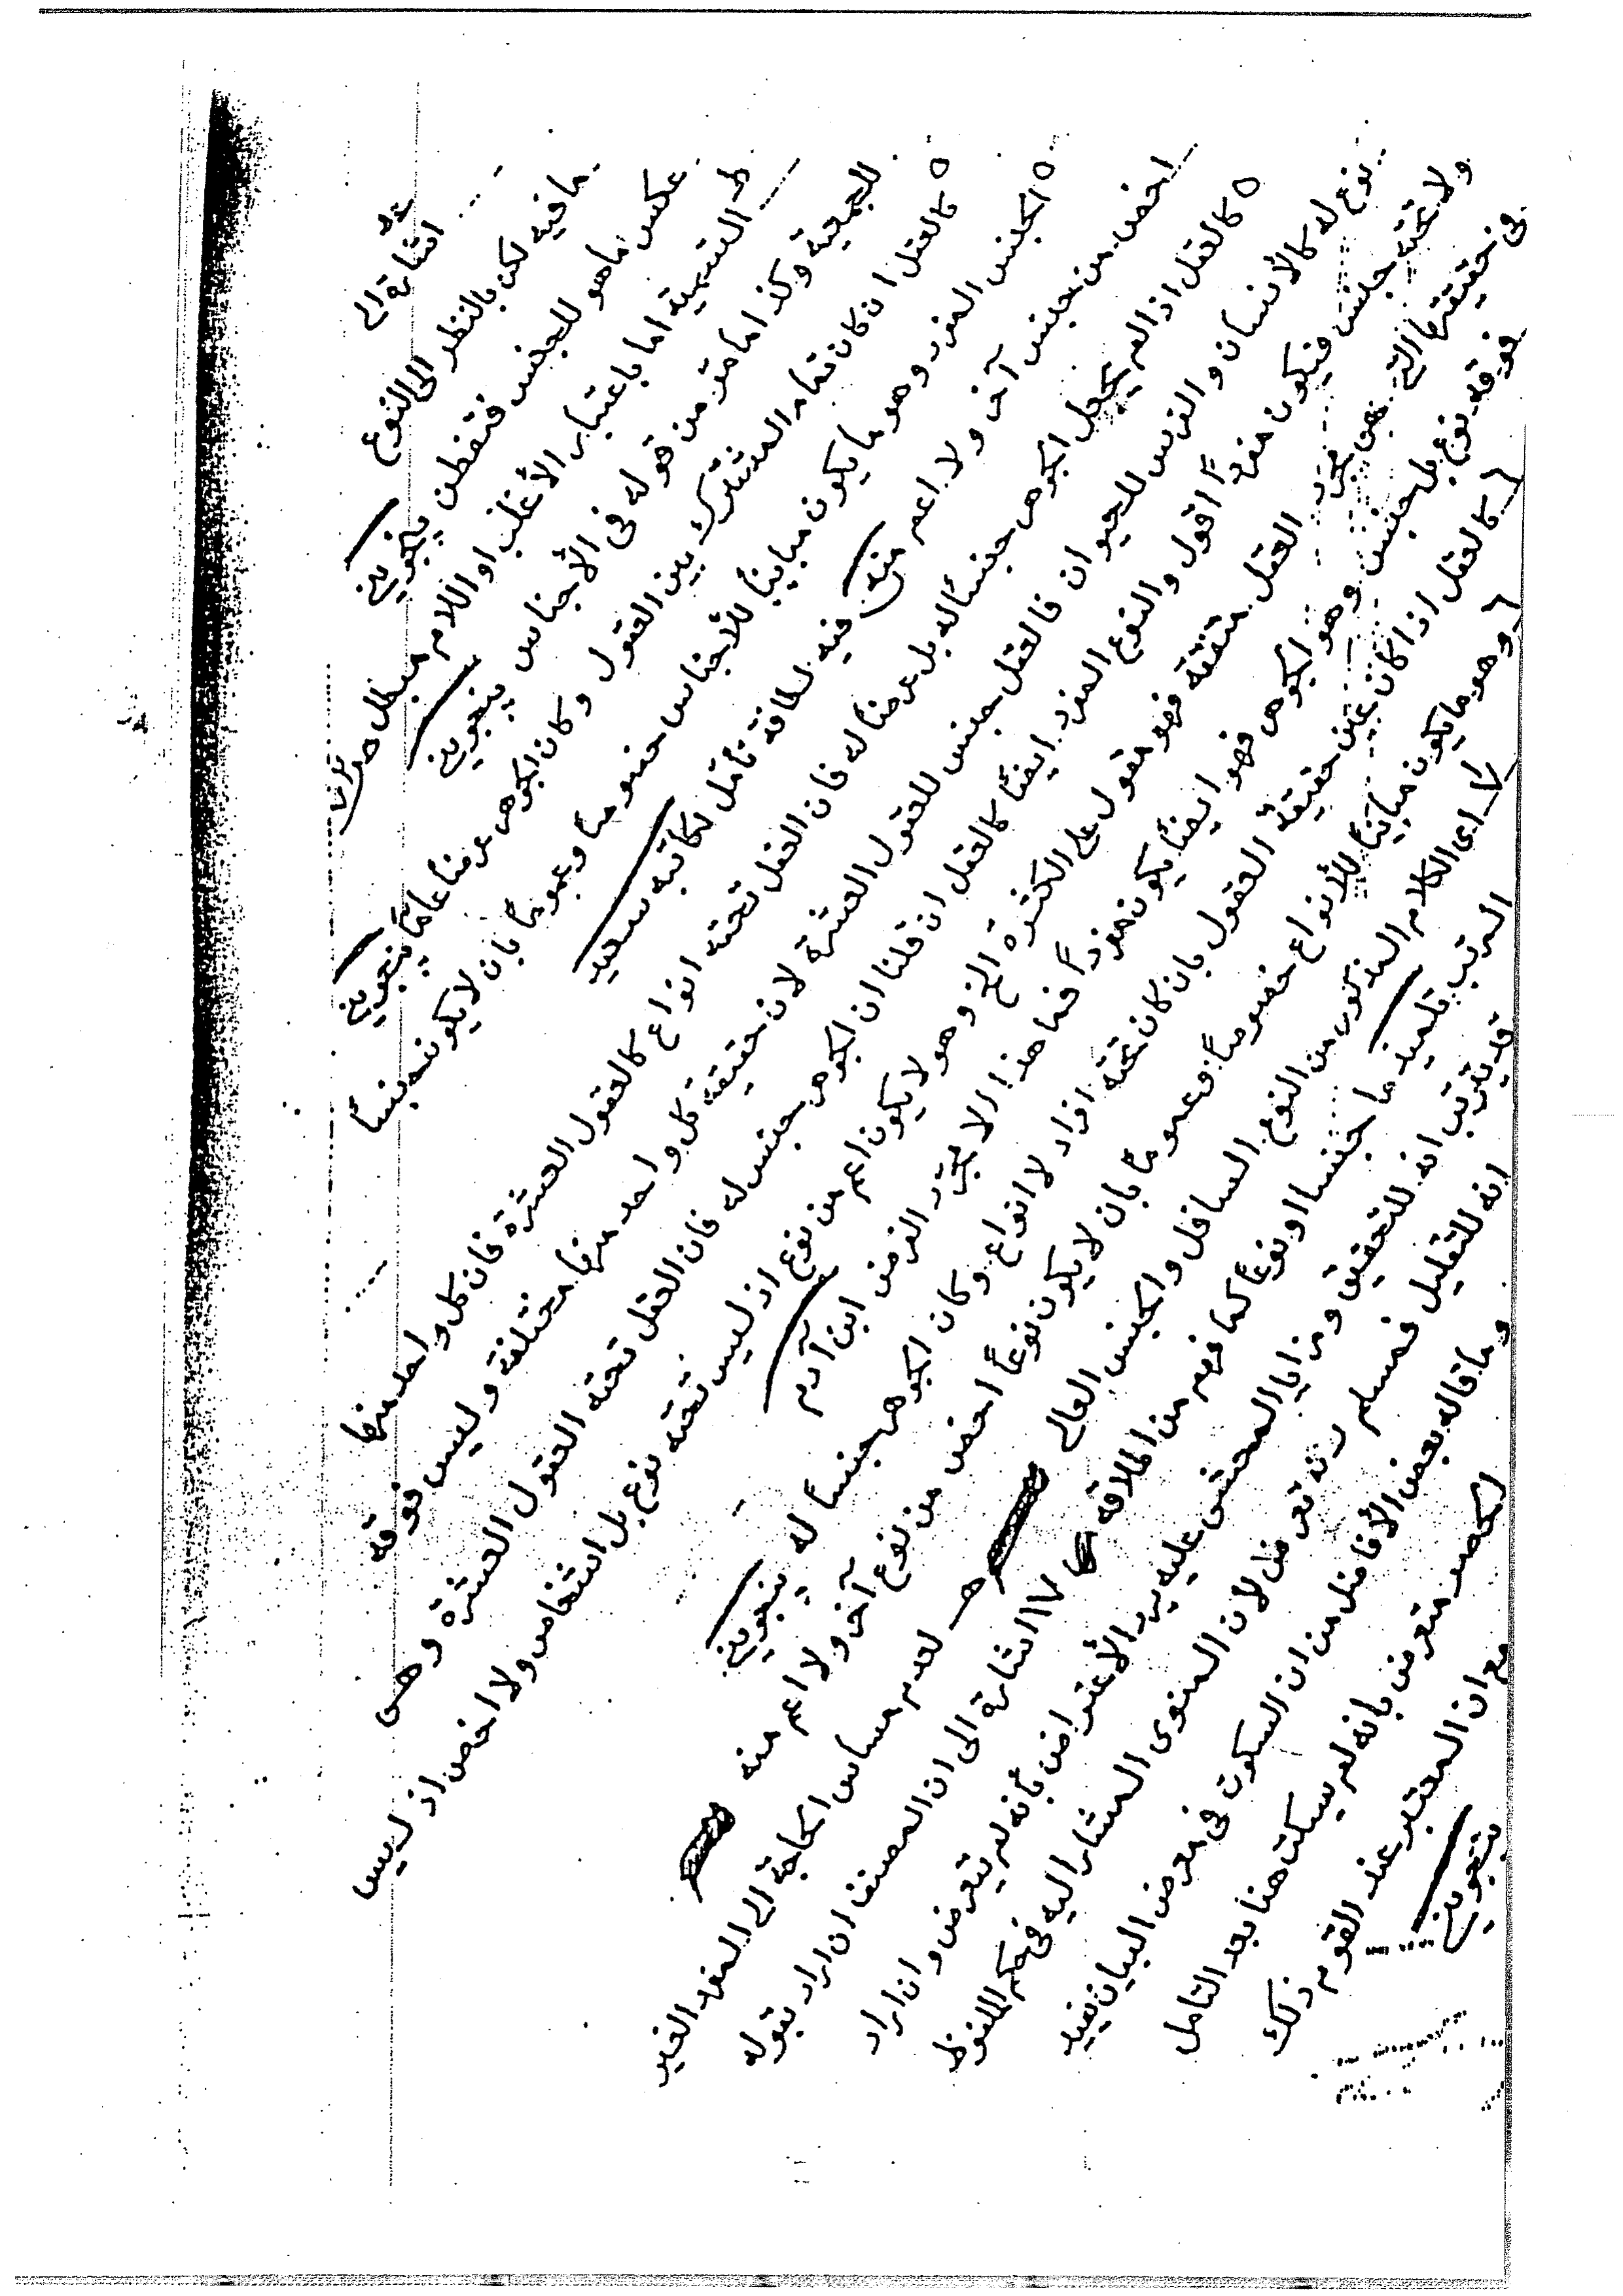 اشارة الى
ما فيه لكن بالنظر الى النوع
عكس ما هو للجنس فتفطن پنجوينى
ط التسمية اما باعتبار الأغلب او اللام مبطل
للجمعية وكذا ما مر من قوله فى الأجناس پنجوينى
٥ كالعقل ان كان تمام المشترك بين العقول وكان الجوهر عرضاً عاماً پنجوينى
٥ الجنس المفرد وهو ما يكون مبايناً للأجناس خصوصاً وعموماً بان لا يكون جنساً
اخص من جنس آخر ولا اعم منه فيه لطافة تأمل لكاتبه سعيد
٥ كالعقل اذا لم يجعل الجوهر جنساً له بل عرضاً له فان العقل تحته انواع كالعقول العشرة فان كل واحد منها
نوع له كالأنسان والفرس للحيوان فالعقل جنس للعقول العشرة لان حقيقة كل واحد منها مختلفة وليس فوقه
ولا تحته جنس فيكون مفرداً اقول والنوع المفرد ايضاً كالعقل ان قلنا ان الجوهر جنس له فان العقل تحته العقول العشرة وهى
فى حقيقتها التى هى مجرد العقل متفقة فهو مقول على الكثرة الخ وهو لا يكون اعم من نوع اذ ليس تحته نوع بل اشخاص ولا اخص اذ ليس
فوقه نوع بل جنس وهو الجوهر فهو ايضاً يكون مفرداً فما هذا الا مجرد الفرض ابن آدم
كالعقل اذا كان عين حقيقة العقول بان كان تحته افراد لا انواع وكان الجوهر جنساً له پنجوينى
وهو ما يكون مبايناً للأنواع خصوصاً وعموماً بان لا يكون نوعاً اخص من نوع آخر ولا اعم منه
٧ اى الكلام المذكور من النوع السافل والجنس العالى لعدم مساس الحاجة الى المفرد الغير
المرتب تلميذ ما جنسا او نوعاً كما فهم من اطلاقه ٧ اشارة الى ان المصنف ان اراد بقوله
قد يترتب انه للتحقيق ومن ايا المحشى عليه يرد الأعتراض بأنه لم يتعرض وان اراد
انه للتقليل فمسلم تعرض لان المنوى المشار اليه فى حكم الملفوظ
وما قاله بعض الأفاضل من ان السكوت فى معرض البيان يفيد
الحصر متعرض بانه لم يسكت هنا بعد التامل
مع ان المعتبر عند القوم ذلك
پنجوينى